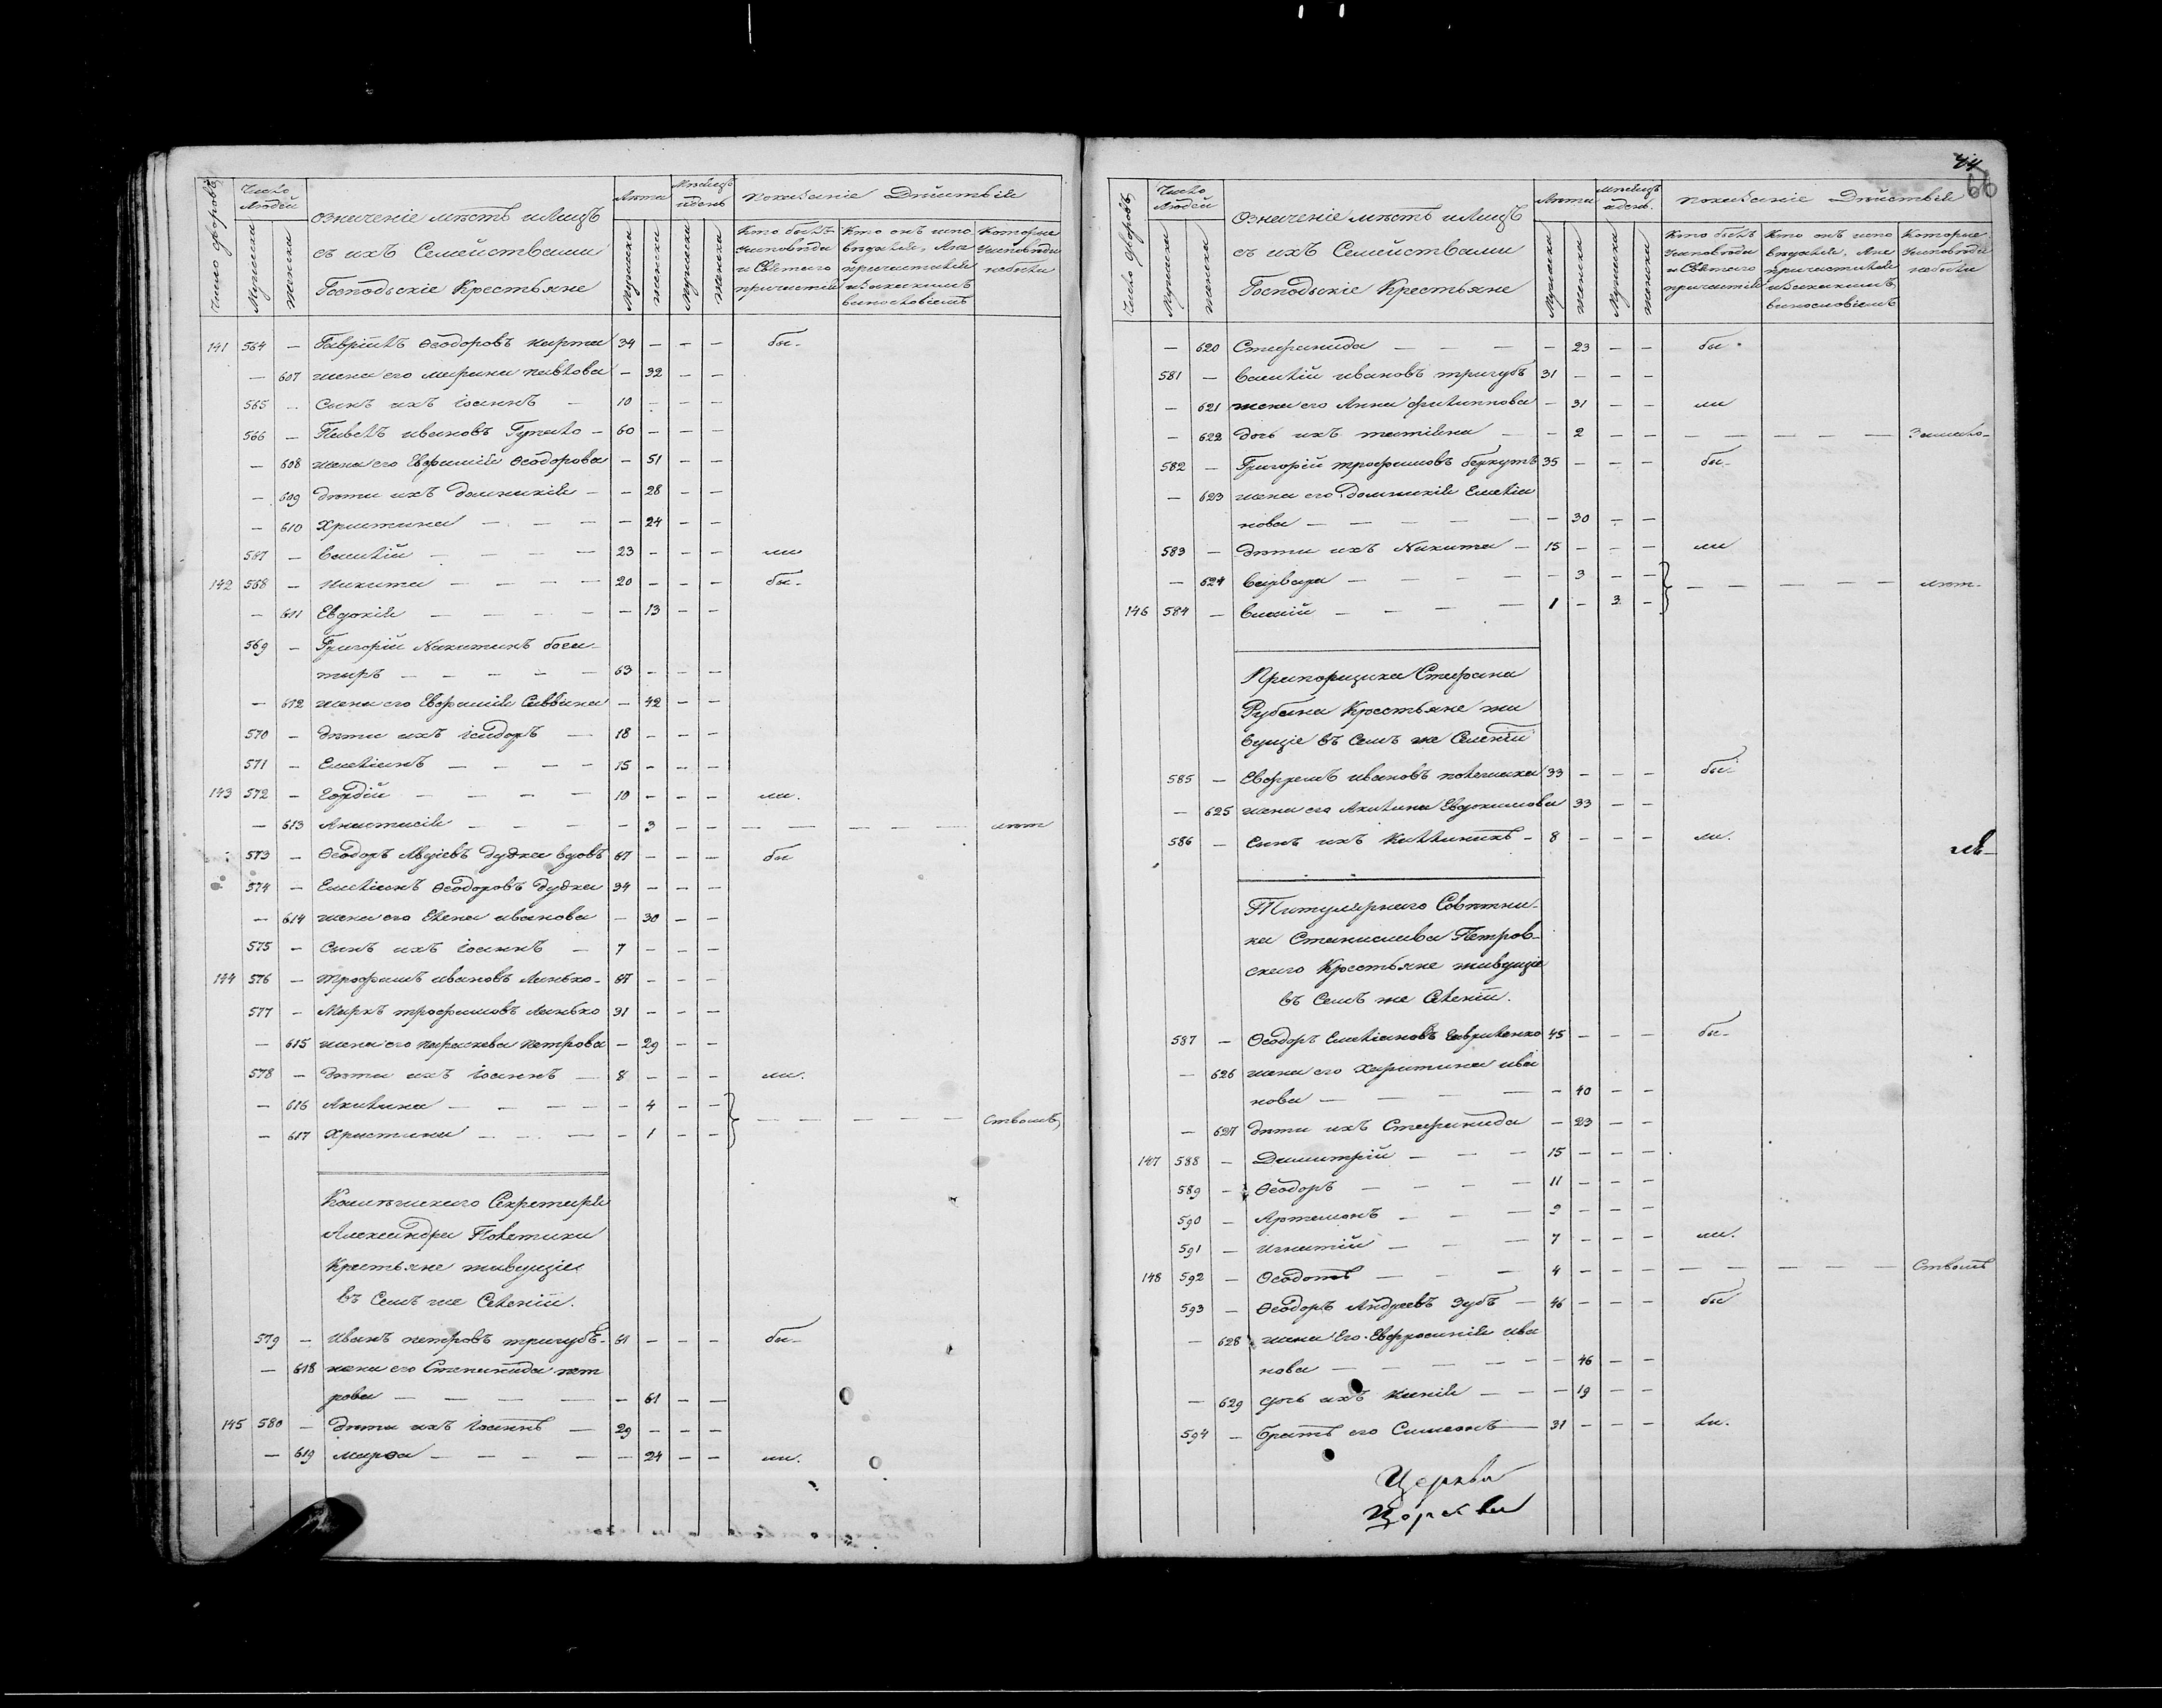 Число дворовъ
Число Людей
Мужеска
Женска
Означеніе мѣстъ и Лицъ
съ ихъ Семействами
Господьскіе Крестьяне
Лѣта
Мужеска
Женска
Мѣсяцъ и день
Мужеска
Женска
Показаніе Дѣйствія
Кто былъ исповѣди и Святаго причастія
Кто онъ испо вѣдался, а не причастился и за какимъ винословіемъ
Которые исповѣди не были
141 564 — Гавріилъ Ѳеодоровъ карта 34 — — — бы.
— 607 жена его марина павлова — 32 — —
565 — Сынъ ихъ іоаннъ — 10 — — —
566 — Павелъ ивановъ — 60 — — —
— 608 жена его Евфимія Ѳеодорова — 51 — —
— 609 дѣти ихъ домникія — — 28 — —
— 610 Христина — — — — 24 — —
567 — василій — — — — 23 — — — ли
142 568 — никита — — — — 20 — — — бы.
— 611 Евдокія — — — — — 13 — —
569 — Григорій Никитинъ бога-
тиръ — — — — — 63 — — —
— 612 жена его Евфимія Саввина — 42 — —
570 — дѣти ихъ ісидоръ — 18 — — —
571 — Емеліанъ — — — — 15 — — —
143 572 — Гордій — — — — 10 — — — ли.
— 613 Анастасія — — — — 3 — — — — — — — лѣт
573 — Ѳеодоръ дудка вдовъ 67 — — — бы
574 — Емеліанъ Ѳеодоровъ дудка 34 — — —
— 614 жена его Елена иванова — 30 — —
575 — Сынъ ихъ іоаннъ — 7 — — —
144 576 — трофимъ ивановъ Линько — 67 — — —
577 — Маркъ трофимовъ Линько 31 — — —
— 615 жена его параскева петрова — 29 — —
578 — дѣти ихъ іоаннъ — 8 — — — ли.
— 616 Акилина — — — — — 4 — —
— 617 Христина — — — — 1 — — — — — — — Ствомъ
Колежскаго Секретаря
Александра Полетики
Крестьяне живущіе
въ Семъ же Селеніи.
579 — Иванъ петровъ тригубъ — 61 — — — бы.
— 618 жена его Степанида пет
рова — — — — — 61 — —
145 580 — дѣти ихъ іоаннъ — 29 — — —
— 619 марѳа — — — — — 24 — — ли.
66
Число дворовъ
Число Людей
Мужеска
Женска
Означеніе мѣстъ и Лицъ
съ ихъ Семействами
Господьскіе Крестьяне
Лѣта
Мужеска
Женска
Мѣсяцъ и день.
Мужеска
Женска
Показаніе Дѣйствія
Кто былъ исповѣди и Святаго причастія
Кто онъ испо вѣдался, а не причастился и за какимъ винословіемъ
Которые исповѣди не были
— 620 Стефанида — — — — 23 — — бы.
581 — василій ивановъ тригубъ 31 — — —
— 621 жена его Анна филиппова — 31 — — ли
— 622 дочь ихъ — — 2 — — — — — — — За мало-
582 — Григорій трофимовъ беркутъ 35 — — — бы.
— 623 жена его домникія Емеліа
нова — — — — — — 30 — —
583 — дѣти ихъ Никита — 15 — — — ли
— 624 варвара — — — — — 3 — —
146 584 — — — — — 1 — 3 — — — — — — лѣт.
Прапорщика Стефана
Рубана Крестьяне жи
вущіе въ Семъ же Селеніи
585 — Евфремъ ивановъ 33 — — — бы
— 625 жена его Акилина Евдокимова 33 — —
586 — Сынъ ихъ Каллиникъ — 8 — — — ли.
Титулярнаго Совѣтни-
ка Станислава Петров-
скаго Крестьяне живущіе
въ Семъ же Селеніи.
587 — Ѳеодоръ Емеліановъ гавриленко 45 — — — бы.
— 626 жена его Харитина ива
нова — — — — — 40 — —
— 627 дѣти ихъ Стефанида — 23 — —
147 588 — Димитрій — — — 15 — — —
589 — Ѳеодоръ — — — — 11 — — —
590 — Артемонъ — — — 9 — — —
591 — игнатій — — — 7 — — — ли.
148 592 — Ѳеодотъ — — — 4 — — — — — — — — Ствомъ
593 — Ѳеодоръ Андреевъ Зубъ — 46 — — — бы
— 628 жена Его Евфросинія ива
нова — — — — — — 46 — —
— 629 дочь ихъ ксенія — — — 19 — —
594 — братъ его Симеонъ — 31 — — — ли.
Церкви
Церкви